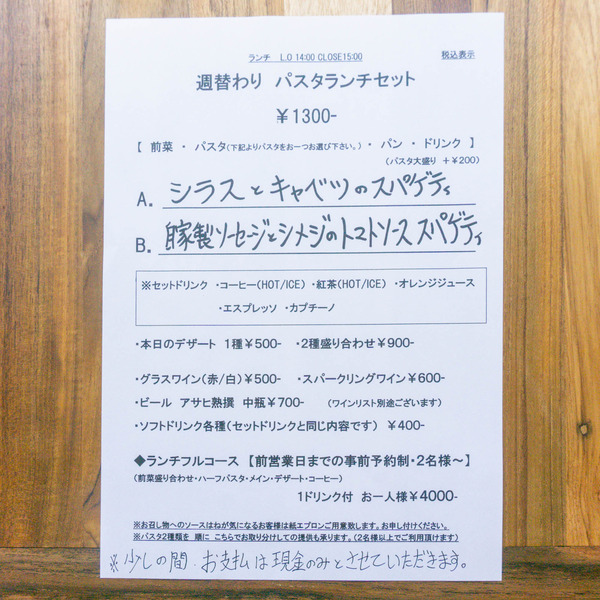 ランチ L.O 14:00 CLOSE15:00 税込表示
週替わり パスタランチセット
￥1300-
【 前菜 ・ パスタ(下記よりパスタをお一つお選び下さい。) ・ パン ・ ドリンク 】
(パスタ大盛り ＋￥200)
A. シラスとキャベツのスパゲティ
B. 自家製ソーセージとシメジのトマトソーススパゲティ
※セットドリンク ・コーヒー(HOT/ICE) ・紅茶(HOT/ICE) ・オレンジジュース
・エスプレッソ ・カプチーノ
・本日のデザート 1種￥500- ・2種盛り合わせ￥900-
・グラスワイン(赤/白)￥500- ・スパークリングワイン￥600-
・ビール アサヒ熟撰 中瓶￥700- (ワインリスト別途ございます)
・ソフトドリンク各種(セットドリンクと同じ内容です) ￥400-
◆ランチフルコース 【前営業日までの事前予約制・2名様～】
(前菜盛り合わせ・ハーフパスタ・メイン・デザート・コーヒー)
1ドリンク付 お一人様￥4000-
※お召し物へのソースはねが気になるお客様は紙エプロンご用意致します。お申し付けください。
※パスタ2種類を 順に こちらでお取り分けしての提供も承ります。(2名様以上でご利用頂けます)
※少しの間、お支払は現金のみとさせていただきます。